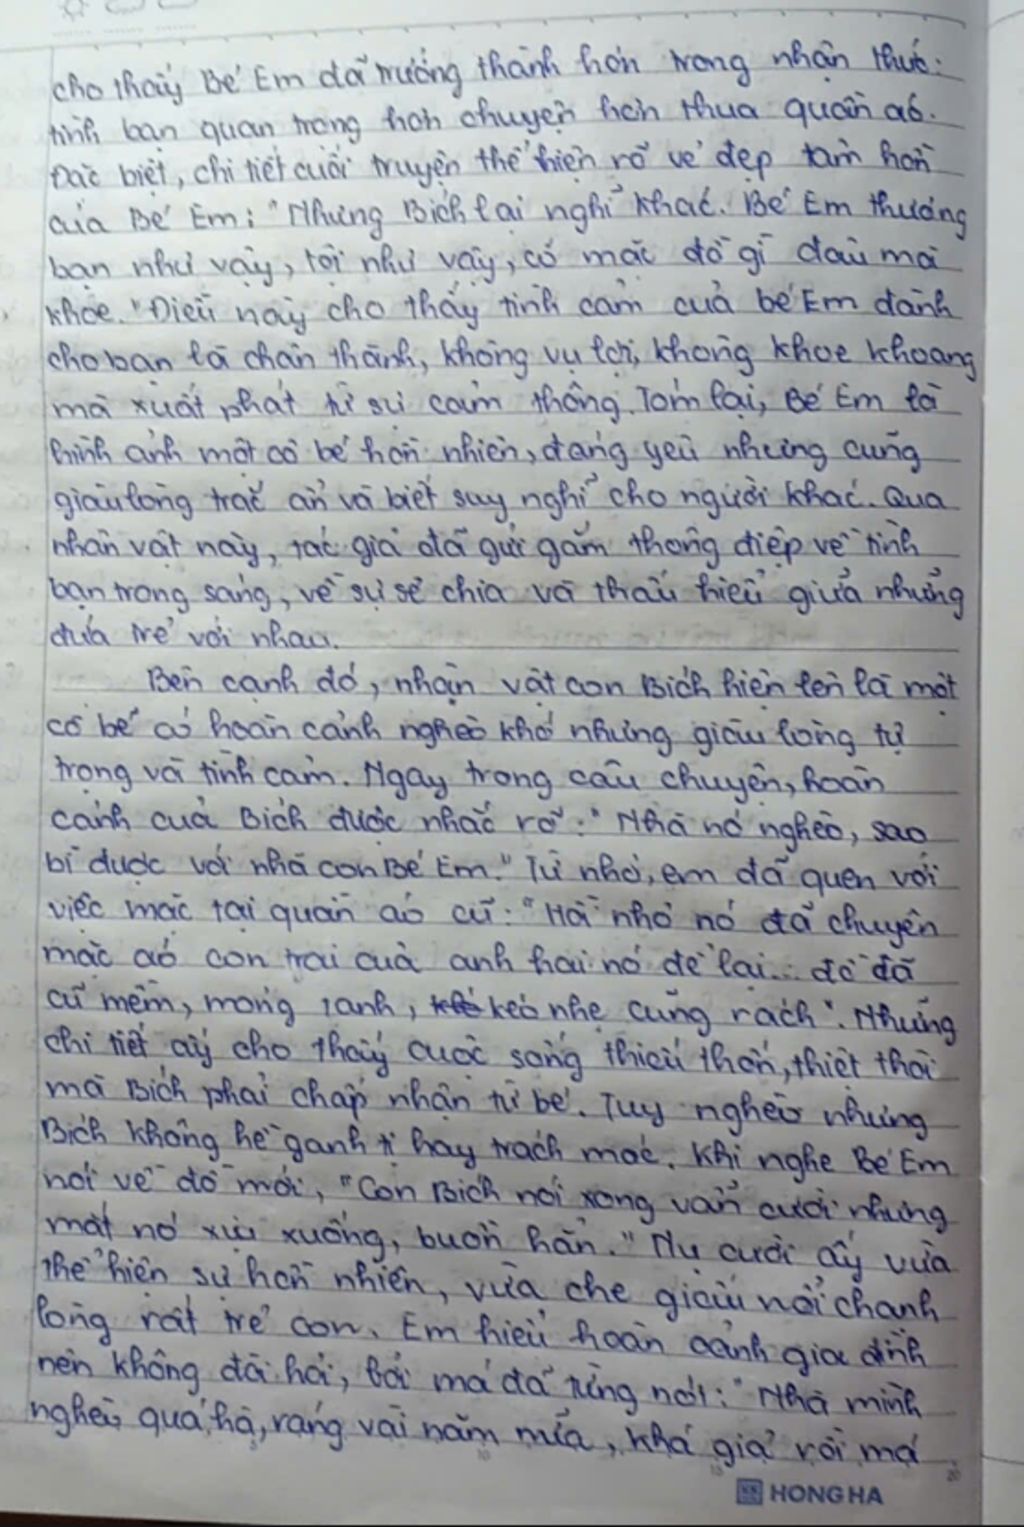 cho thấy Bé Em đã trưởng thành hơn trong nhận thức:
tình bạn quan trọng hơn chuyện hơn thua quần áo.
Đặc biệt, chi tiết cuối truyện thể hiện rõ vẻ đẹp tâm hồn
của Bé Em: "Nhưng Bích lại nghĩ khác. Bé Em thương
bạn như vậy, tội như vậy, có mặc đồ gì đâu mà
khoe." Điều này cho thấy tình cảm của bé Em dành
cho bạn là chân thành, không vụ lợi, không khoe khoang
mà xuất phát từ sự cảm thông. Tóm lại, Bé Em là
hình ảnh một cô bé hồn nhiên, đáng yêu nhưng cũng
giàu lòng trắc ẩn và biết suy nghĩ cho người khác. Qua
nhân vật này, tác giả đã gửi gắm thông điệp về tình
bạn trong sáng, về sự sẻ chia và thấu hiểu giữa những
đứa trẻ với nhau.
Bên cạnh đó, nhận vật con Bích hiện lên là một
cô bé có hoàn cảnh nghèo khó nhưng giàu lòng tự
trọng và tình cảm. Ngay trong câu chuyện, hoàn
cảnh của Bích được nhắc rõ: "Nhà nó nghèo, sao
bì được với nhà con Bé Em." Từ nhỏ, em đã quen với
việc mặc lại quần áo cũ: "Hồi nhỏ nó đã chuyên
mặc áo con trai của anh hai nó để lại... đồ đã
cũ mèm, mỏng tanh, kéo nhẹ cũng rách". Những
chi tiết ấy cho thấy cuộc sống thiếu thốn, thiệt thòi
mà Bích phải chấp nhận từ bé. Tuy nghèo nhưng
Bích không hề ganh tị hay trách móc. Khi nghe Bé Em
nói về đồ mới, "Con Bích nói xong vẫn cười nhưng
mắt nó xụi xuống, buồn hẳn." Nụ cười ấy vừa
thể hiện sự hồn nhiên, vừa che giấu nỗi chạnh
lòng rất trẻ con. Em hiểu hoàn cảnh gia đình
nên không đòi hỏi, bởi má đã từng nói: "Nhà mình
nghèo quá hà, ráng vài năm nữa, khá giả rồi má
HONG HA